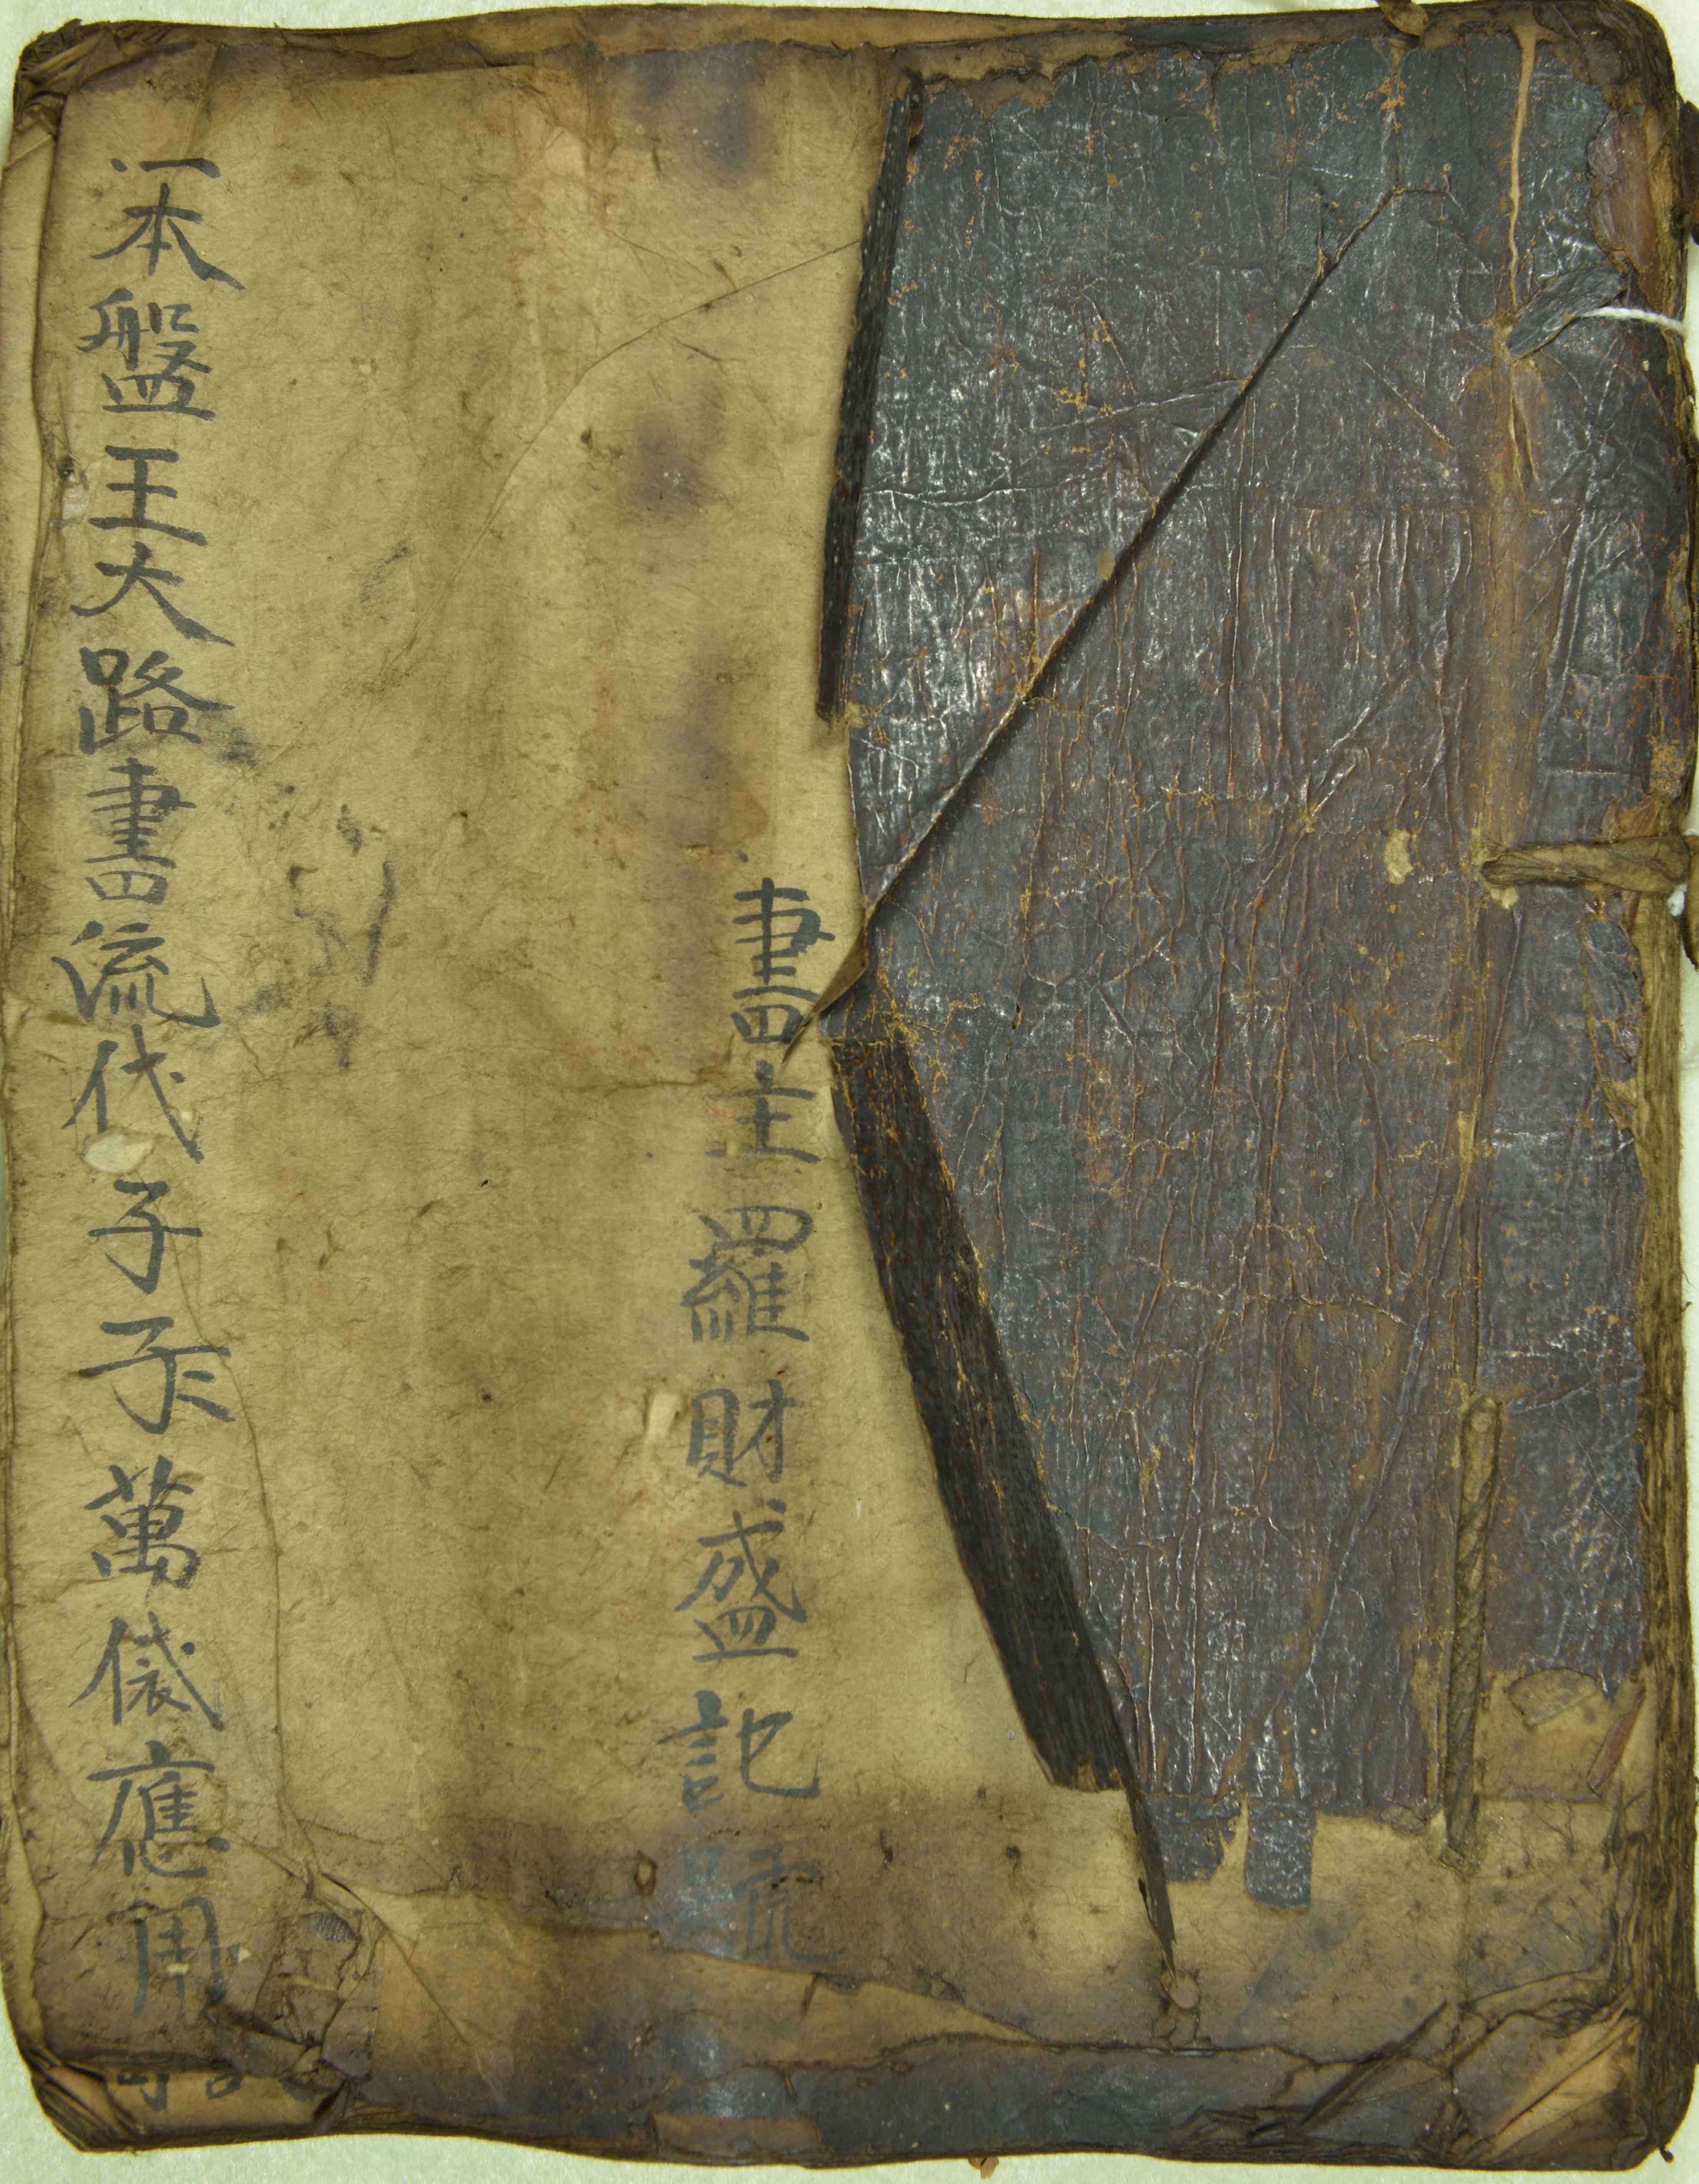 書主羅財盛記號
一本盤王大路書流代子孫萬應用